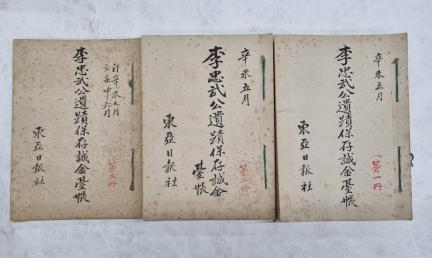 辛未五月
第一冊
李忠武公遺蹟保存誠金臺帳
東亞日報社
辛未五月
第二冊
李忠武公遺蹟保存誠金
臺帳
東亞日報社
自辛未九月
至壬申六月
第三冊
李忠武公遺蹟保存誠金臺帳
東亞日報社